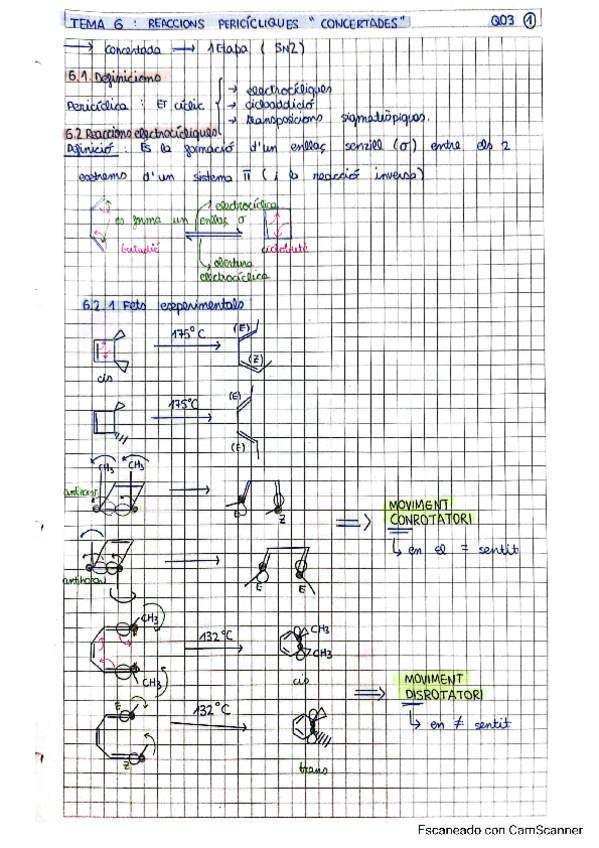 TEMA 6 : REACCIONS PERICÍCLIQUES " CONCERTADES" QO3 1
→ Concertada → 1 Etapa ( SN2)
6.1. Definicions
→ electrocícliques
Pericíclica : ET cíclic → cicloaddició
→ transposicions sigmatròpiques.
6.2 Reaccions electrocícliques
Definició : És la formació d'un enllaç senzill (σ) entre els 2
extrems d'un sistema π ( i la reacció inversa)
electrocíclica
es forma un enllaç σ
butadiè ciclobutè
obertura
electrocíclica
6.2.1 Fets experimentals
175°C (E)
(Z)
cis
175°C (E)
(E)
CH3 CH3
antihorari
E Z
MOVIMENT
CONROTATORI
↳ en el = sentit
antihorari
E E
CH3
132°C CH3
CH3
CH3
cis
MOVIMENT
DISROTATORI
↳ en ≠ sentit
E 132°C
Z
trans
Escaneado con CamScanner